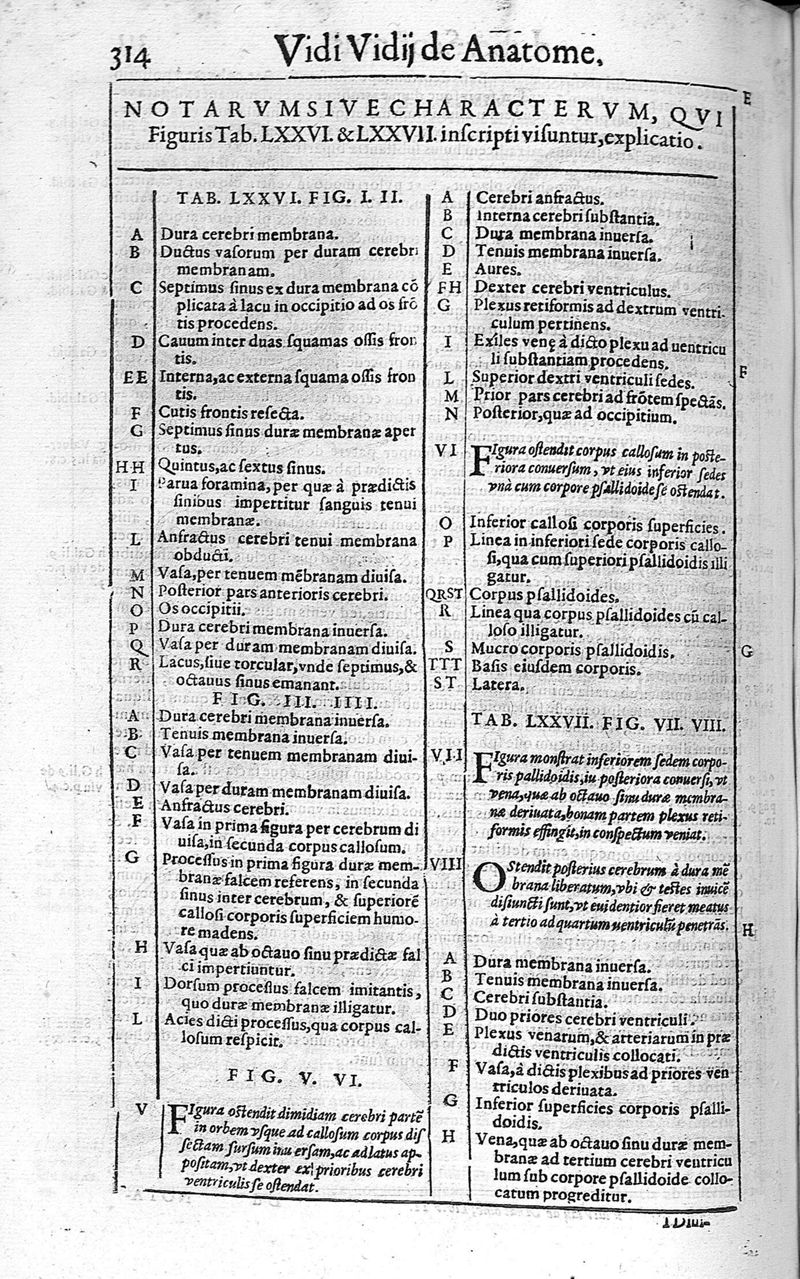 314 Vidi Vidij de Anatome.
NOTARVM SIVE CHARACTERVM, QVI
Figuris Tab. LXXVI. & LXXVII. inſcripti viſuntur, explicatio.
TAB. LXXVI. FIG. I. II.
A Dura cerebri membrana.
B Ductus vaſorum per duram cerebri
membranam.
C Septimus ſinus ex dura membrana cõ
plicata à lacu in occipitio ad os frõ
tis procedens.
D Cauum inter duas ſquamas oſſis fron
tis.
EE Interna, ac externa ſquama oſſis fron
tis.
F Cutis frontis reſecta.
G Septimus ſinus duræ membranæ aper
tus.
HH Quintus, ac ſextus ſinus.
I Parua foramina, per quæ à prædictis
ſinibus impertitur ſanguis tenui
membranæ.
L Anfractus cerebri tenui membrana
obducti.
M Vaſa, per tenuem mẽbranam diuiſa.
N Poſterior pars anterioris cerebri.
O Os occipitii.
P Dura cerebri membrana inuerſa.
Q Vaſa per duram membranam diuiſa.
R Lacus, ſiue torcular, vnde ſeptimus, &
octauus ſinus emanant.
FIG. III. IIII.
A Dura cerebri membrana inuerſa.
B Tenuis membrana inuerſa.
C Vaſa per tenuem membranam diui-
ſa.
D Vaſa per duram membranam diuiſa.
E Anfractus cerebri.
F Vaſa in prima figura per cerebrum di
uiſa, in ſecunda corpus calloſum.
G Proceſſus in prima figura duræ mem-
branæ falcem referens, in ſecunda
ſinus inter cerebrum, & ſuperiorẽ
calloſi corporis ſuperficiem humo-
re madens.
H Vaſa quæ ab octauo ſinu prædictæ fal
ci impertiuntur.
I Dorſum proceſſus falcem imitantis,
quo duræ membranæ illigatur.
L Acies dicti proceſſus, qua corpus cal-
loſum reſpicit.
FIG. V. VI.
V Figura oſtendit dimidiam cerebri partẽ
in orbem vſque ad calloſum corpus diſ
ſectam ſurſum inuerſam, ac ad latus ap-
poſitam, vt dexter ex prioribus cerebri
ventriculis ſe oſtendat.
A Cerebri anfractus.
B Interna cerebri ſubſtantia.
C Dura membrana inuerſa.
D Tenuis membrana inuerſa.
E Aures.
FH Dexter cerebri ventriculus.
G Plexus retiformis ad dextrum ventri-
culum pertinens.
I Exiles venę à dicto plexu ad uentricu
li ſubſtantiam procedens.
L Superior dextri ventriculi ſedes.
M Prior pars cerebri ad frõtem ſpectãs.
N Poſterior, quæ ad occipitium.
VI Figura oſtendit corpus calloſum in poſte-
riora conuerſum, vt eius inferior ſedes
vnà cum corpore pſallidoide ſe oſtendat.
O Inferior calloſi corporis ſuperficies.
P Linea in inferiori ſede corporis callo-
ſi, qua cum ſuperiori pſallidoidis illi
gatur.
QRST Corpus pſallidoides.
R Linea qua corpus pſallidoides cũ cal-
loſo illigatur.
S Mucro corporis pſallidoidis.
TTT Baſis eiuſdem corporis.
ST Latera.
TAB. LXXVII. FIG. VII. VIII.
VII Figura monſtrat inferiorem ſedem corpo-
ris pſallidoidis, in poſteriora conuerſi, vt
vena, quæ ab octauo ſinu duræ membra-
næ deriuata, bonam partem plexus reti-
formis effingit, in conſpectum veniat.
VIII Oſtendit poſterius cerebrum à dura mẽ
brana liberatum, vbi & teſtes inuicẽ
diſiuncti ſunt, vt euidentior fieret meatus
à tertio ad quartum uentriculũ penetrãs.
A Dura membrana inuerſa.
B Tenuis membrana inuerſa.
C Cerebri ſubſtantia.
D Duo priores cerebri ventriculi.
E Plexus venarum, & arteriarum in præ
dictis ventriculis collocati.
F Vaſa, à dictis plexibus ad priores ven
triculos deriuata.
G Inferior ſuperficies corporis pſalli-
doidis.
H Vena, quæ ab octauo ſinu duræ mem-
branæ ad tertium cerebri ventricu
lum ſub corpore pſallidoide collo-
catum progreditur.
E
F
G
H